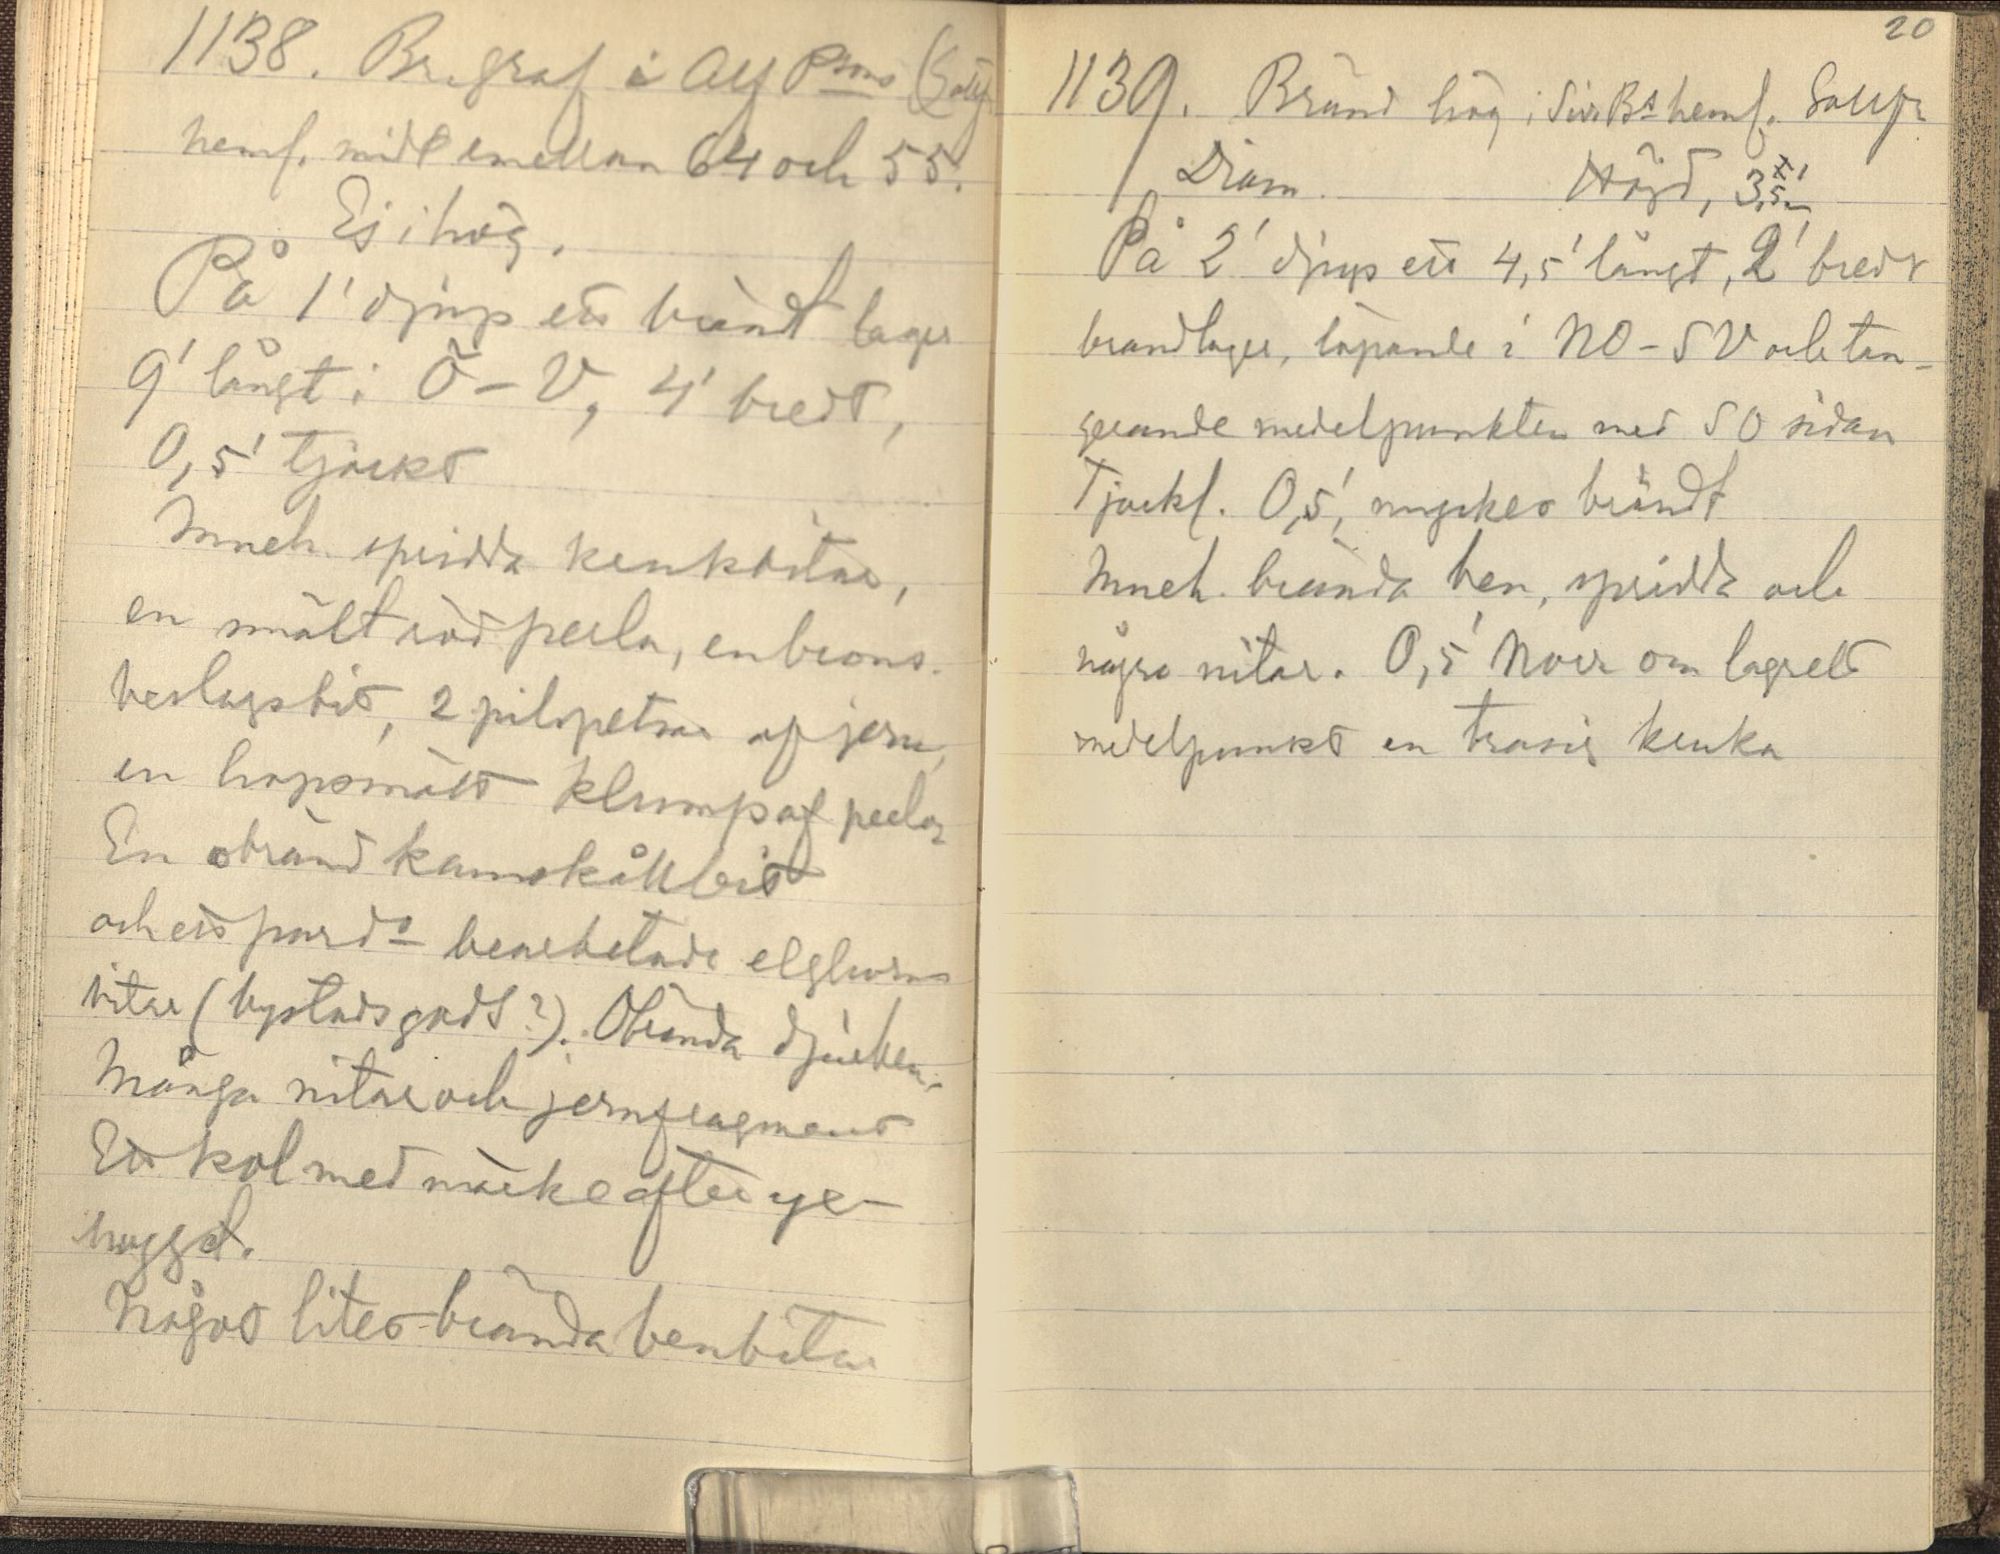 1138. Br. graf i Alf Psons (Solf.
hemf. midt emellan 64 och 55.
Ej i hög.
På 1' djup ett brändt lager
9' långt i Ö–V, 4' bredt,
0,5' tjockt
Inneh. spridda krukbitar,
en smält röd perla, en brons-
beslagsbit, 2 pilspetsar af jern,
en hopsmält klump af perlor
En obränd kamskållbit
och ett par do bearbetade elghorns
bitar (bystadsgods?). Obrända djurben.
Många nitar och jernfragment
Ett kol med märke efter yx-
hugget.
Något litet brända benbitar
20
1139. Bränd hög i Siv. Bs hemf. Solf.
Diam. Höjd, 3,5
På 2' djup ett 4,5' långt, 2' bredt
brandlager, löpande i NO–SV och tan-
gerande medelpunkten med SO sidan
Tjockl. 0,5', mycket brändt
Inneh. brända ben, spridda och
några nitar. 0,5' Norr om lagrets
medelpunkt en trasig kruka